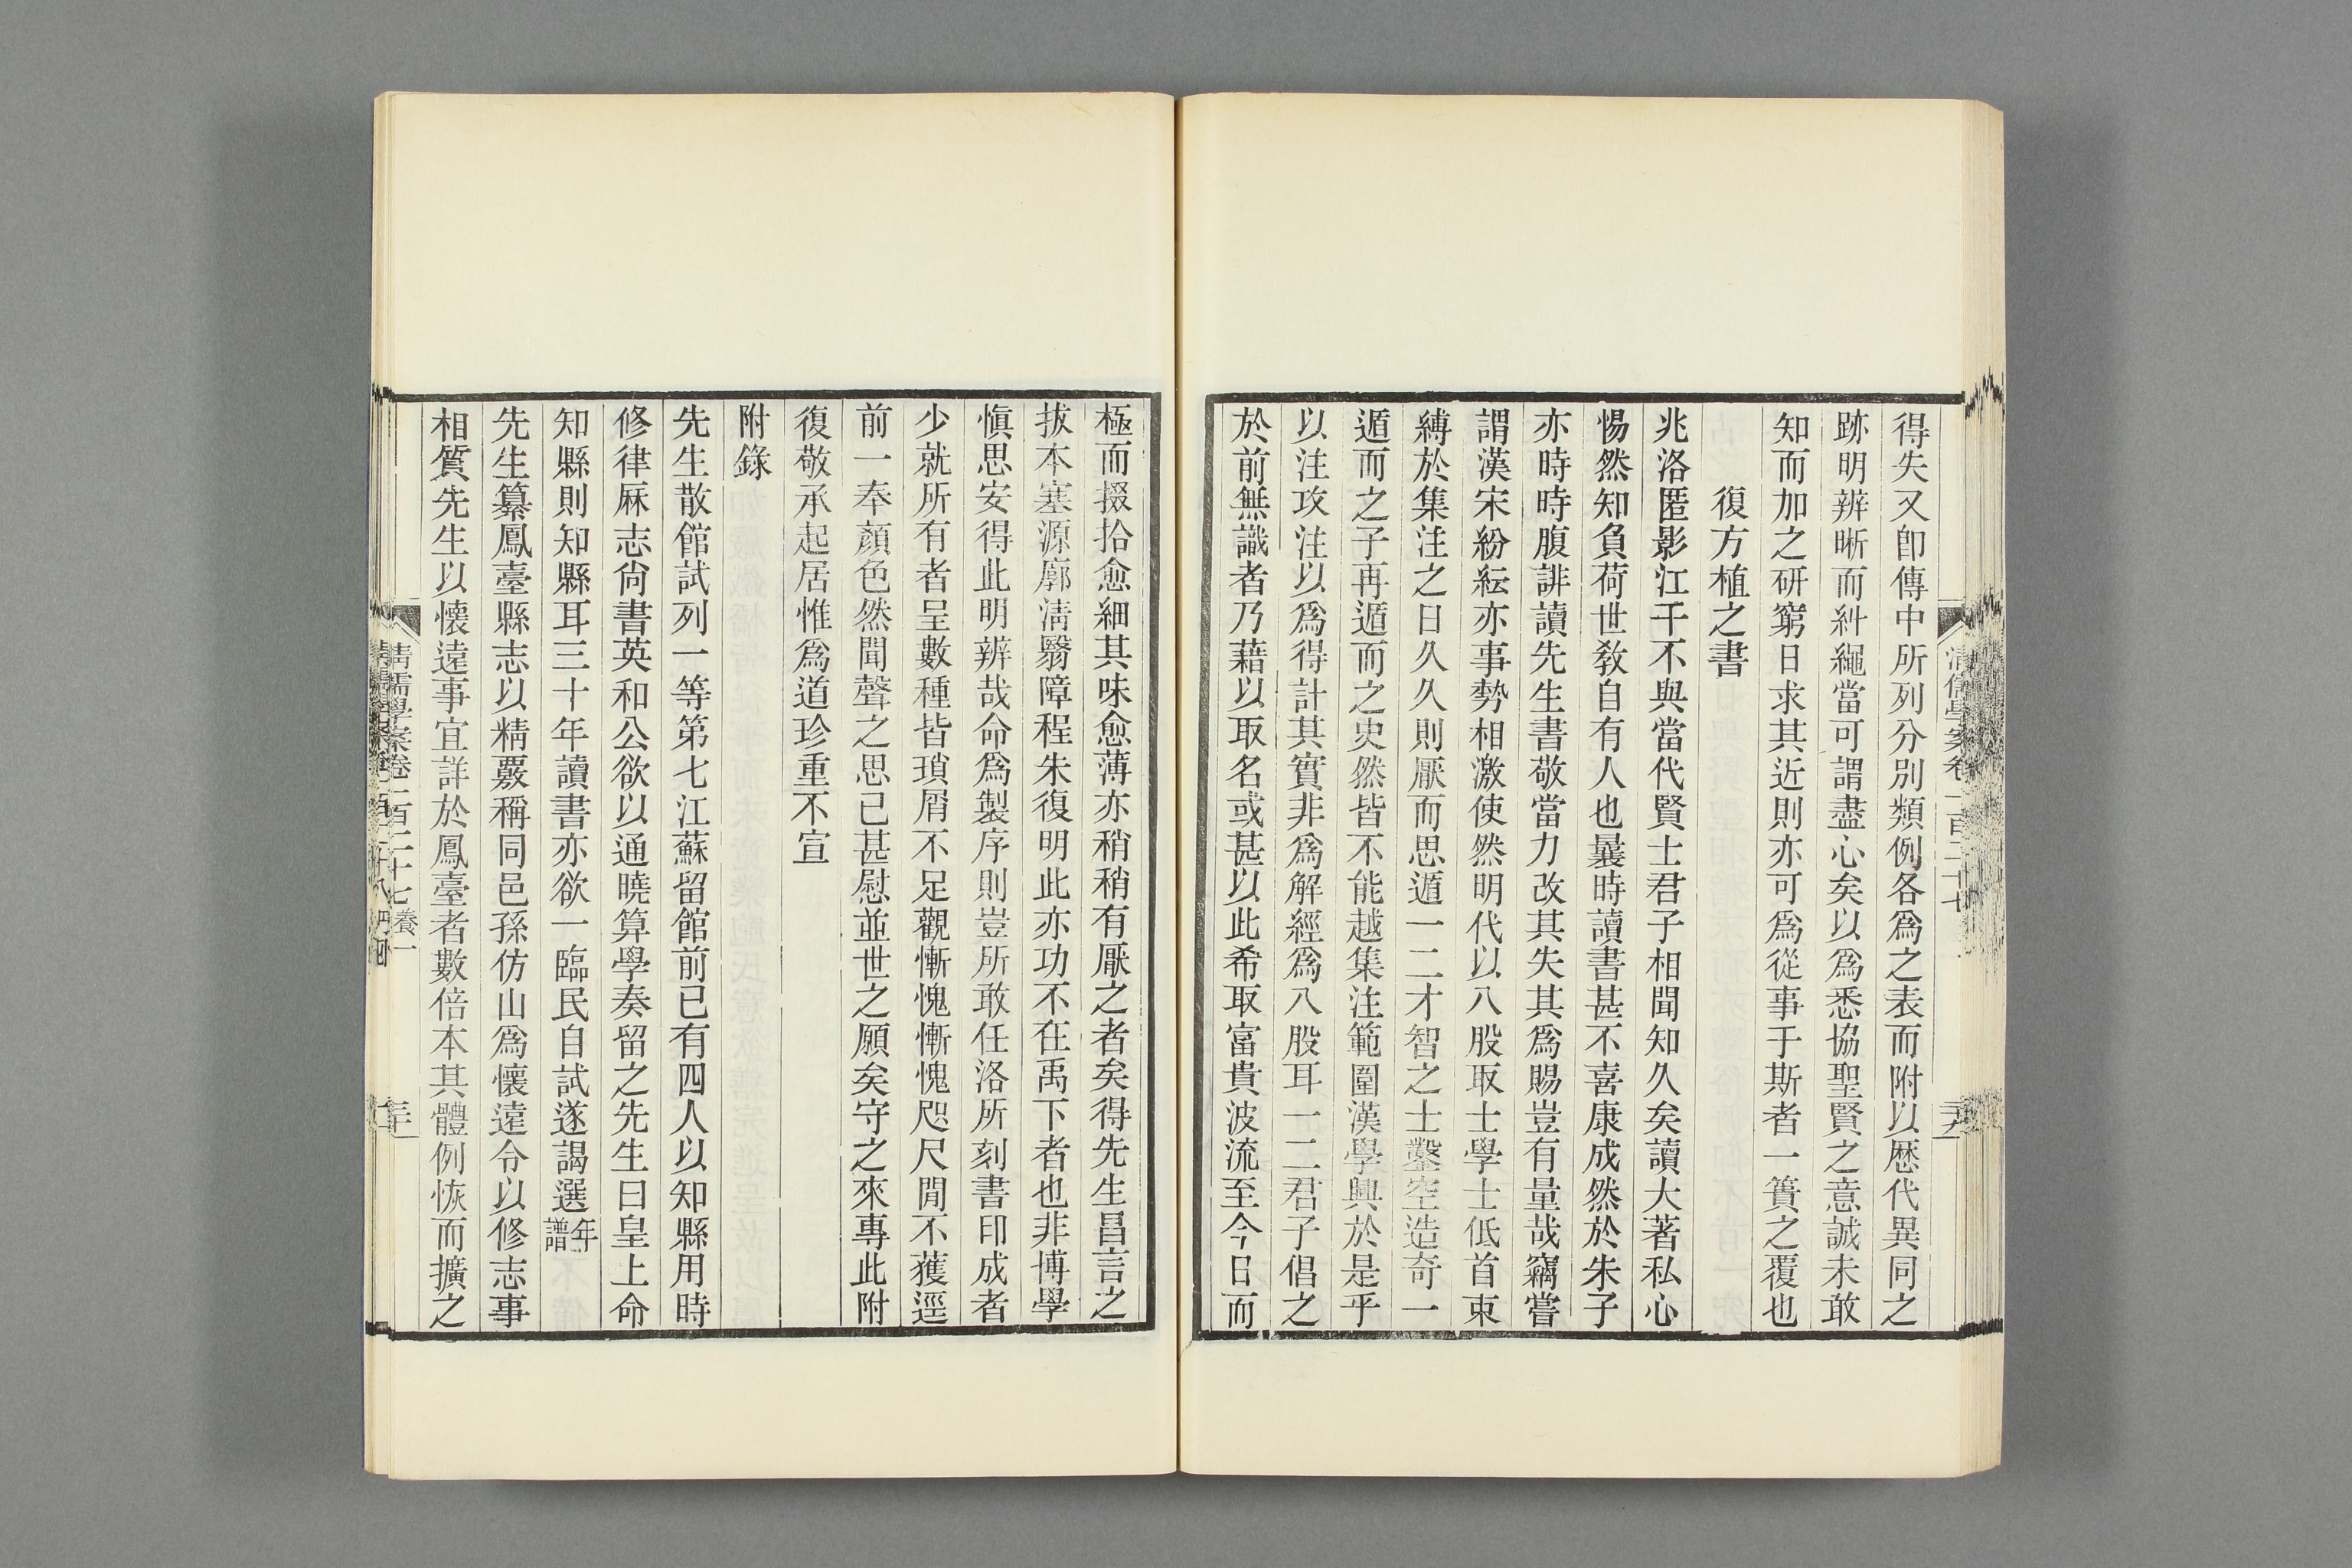 得失又卽傳中所列分別類例各爲之表而附以歷代異同之
跡明辨晰而糾繩當可謂盡心矣以爲悉協聖賢之意誠未敢
知而加之硏窮日求其近則亦可爲從事于斯者一簣之覆也
復方植之書
兆洛匿影江干不與當代賢士君子相聞知久矣讀大著私心
惕然知負荷世敎自有人也曩時讀書甚不喜康成然於朱子
亦時時腹誹讀先生書敬當力改其失其爲賜豈有量哉竊嘗
謂漢宋紛紜亦事勢相激使然明代以八股取士學士低首束
縛於集注之日久久則厭而思遁一二才智之士鑿空造奇一
遁而之子再遁而之史然皆不能越集注範圍漢學興於是乎
以注攻注以爲得計其實非爲解經爲八股耳一二君子倡之
於前無識者乃藉以取名或甚以此希取富貴波流至今日而
極而掇拾愈細其味愈薄亦稍稍有厭之者矣得先生昌言之
拔本塞源廓淸翳障程朱復明此亦功不在禹下者也非博學
愼思安得此明辨哉命爲製序則豈所敢任洛所刻書印成者
少就所有者呈數種皆瑣屑不足觀慚愧慚愧咫尺閒不獲逕
前一奉顏色然聞聲之思已甚慰並世之願矣守之來專此附
復敬承起居惟爲道珍重不宣
附錄
先生散館試列一等第七江蘇留館前已有四人以知縣用時
修律厤志尙書英和公欲以通曉算學奏留之先生曰皇上命
知縣則知縣耳三十年讀書亦欲一臨民自試遂謁選年譜
先生纂鳳臺縣志以精覈稱同邑孫仿山爲懷遠令以修志事
相質先生以懷遠事宜詳於鳳臺者數倍本其體例恢而擴之
淸儒學案卷一百二十七養一